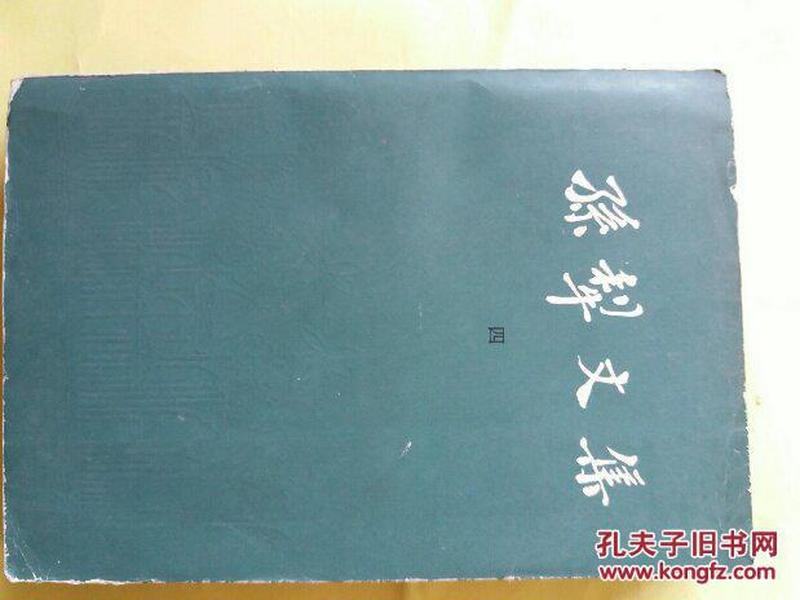 孫犁文集
四
孔夫子旧书网
www.kongfz.com